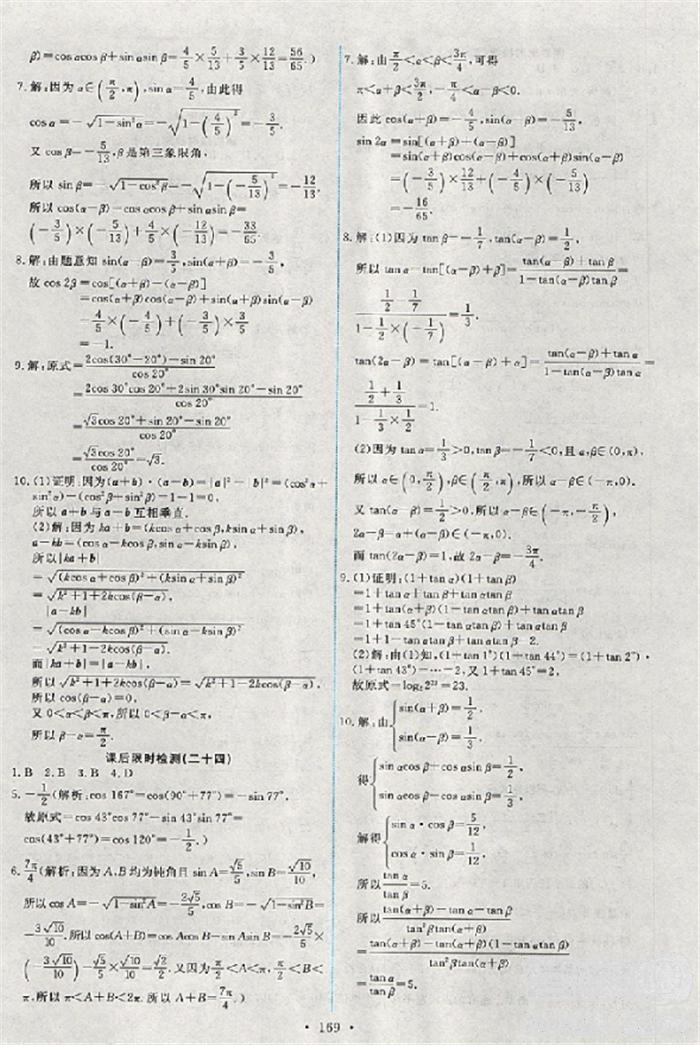 β)=cosαcosβ+sinαsinβ=4/5×5/13+3/5×12/13=56/65.)
7.解:因为α∈(π/2,π),sinα=4/5,由此得
cosα=-√(1-sin²α)=-√(1-(4/5)²)=-3/5.
又cosβ=-5/13,β是第三象限角,
所以sinβ=-√(1-cos²β)=-√(1-(-5/13)²)=-12/13.
所以cos(α-β)=cosαcosβ+sinαsinβ=
(-3/5)×(-5/13)+4/5×(-12/13)=-33/65.
8.解:由题意知sin(α-β)=3/5,sin(α+β)=-3/5,
故cos2β=cos[(α+β)-(α-β)]
=cos(α+β)cos(α-β)+sin(α+β)sin(α-β)
=4/5×(-4/5)+(-3/5)×3/5
=-1.
9.解:原式=(2cos(30°-20°)-sin20°)/cos20°
=(2cos30°cos20°+2sin30°sin20°-sin20°)/cos20°
=(√3cos20°+sin20°-sin20°)/cos20°
=√3cos20°/cos20°=√3.
10.(1)证明:因为(a+b)·(a-b)=|a|²-|b|²=(cos²α+
sin²α)-(cos²β+sin²β)=1-1=0,
所以a+b与a-b互相垂直.
(2)解:因为ka+b=(kcosα+cosβ,ksinα+sinβ),
a-kb=(cosα-kcosβ,sinα-ksinβ),
所以|ka+b|
=√((kcosα+cosβ)²+(ksinα+sinβ)²)
=√(k²+1+2kcos(β-α)),
|a-kb|
=√((cosα-kcosβ)²+(sinα-ksinβ)²)
=√(k²+1-2kcos(β-α)).
而|ka+b|=|a-kb|,
所以√(k²+1+2kcos(β-α))=√(k²+1-2kcos(β-α)).
所以cos(β-α)=0,
又0<α<β<π,所以0<β-α<π,
所以β-α=π/2.
课后限时检测(二十四)
1.B 2.B 3.B 4.D
5.-1/2(解析:cos167°=cos(90°+77°)=-sin77°.
故原式=cos43°cos77°-sin43°sin77°=
cos(43°+77°)=cos120°=-1/2.)
6.7π/4(解析:因为A,B均为钝角且sinA=√5/5,sinB=√10/10,
所以cosA=-√(1-sin²A)=-2√5/5,cosB=-√(1-sin²B)=
-3√10/10.所以cos(A+B)=cosAcosB-sinAsinB=-2√5/5×
(-3√10/10)-√5/5×√10/10=√2/2.又因为π/2<A<π,π/2<B<
π,所以π<A+B<2π.所以A+B=7π/4.)
7.解:由π/2<α<β<3π/4,可得
π<α+β<3π/2,-π/4<α-β<0.
因此cos(α+β)=-4/5,sin(α-β)=-5/13,
sin2α=sin[(α+β)+(α-β)]
=sin(α+β)cos(α-β)+cos(α+β)sin(α-β)
=(-3/5)×12/13+(-4/5)×(-5/13)
=-16/65.
8.解:(1)因为tanβ=-1/7,tan(α-β)=1/2,
所以tanα=tan[(α-β)+β]=(tan(α-β)+tanβ)/(1-tan(α-β)tanβ)=
(1/2-1/7)/(1-1/2×(-1/7))=1/3.
tan(2α-β)=tan[(α-β)+α]=(tan(α-β)+tanα)/(1-tan(α-β)tanα)=
(1/2+1/3)/(1-1/2×1/3)=1.
(2)因为tanα=1/3>0,tanβ=-1/7<0,且α,β∈(0,π),
所以α∈(0,π/2),β∈(π/2,π),所以α-β∈(-π,0).
又tan(α-β)=1/2>0.所以α-β∈(-π,-π/2),
2α-β=α+(α-β)∈(-π,0).
而tan(2α-β)=1,故2α-β=-3π/4.
9.(1)证明:(1+tanα)(1+tanβ)
=1+tanα+tanβ+tanαtanβ
=1+tan(α+β)(1-tanαtanβ)+tanαtanβ
=1+tan45°(1-tanαtanβ)+tanαtanβ
=1+1-tanαtanβ+tanαtanβ=2.
(2)解:由(1)知,(1+tan1°)(1+tan44°)=(1+tan2°)·
(1+tan43°)=…=2,又1+tan45°=2,
故原式=log₂2²³=23.
10.解:由{sin(α+β)=1/2,
sin(α-β)=1/3.
得{sinαcosβ+cosαsinβ=1/2,
sinαcosβ-cosαsinβ=1/3,
解得{sinα·cosβ=5/12,
cosα·sinβ=1/12.
所以tanα/tanβ=5.
所以(tan(α+β)-tanα-tanβ)/(tan²βtan(α+β))
=(tan(α+β)-tan(α+β)(1-tanαtanβ))/(tan²βtan(α+β))
=tanα/tanβ=5.
• 169 •